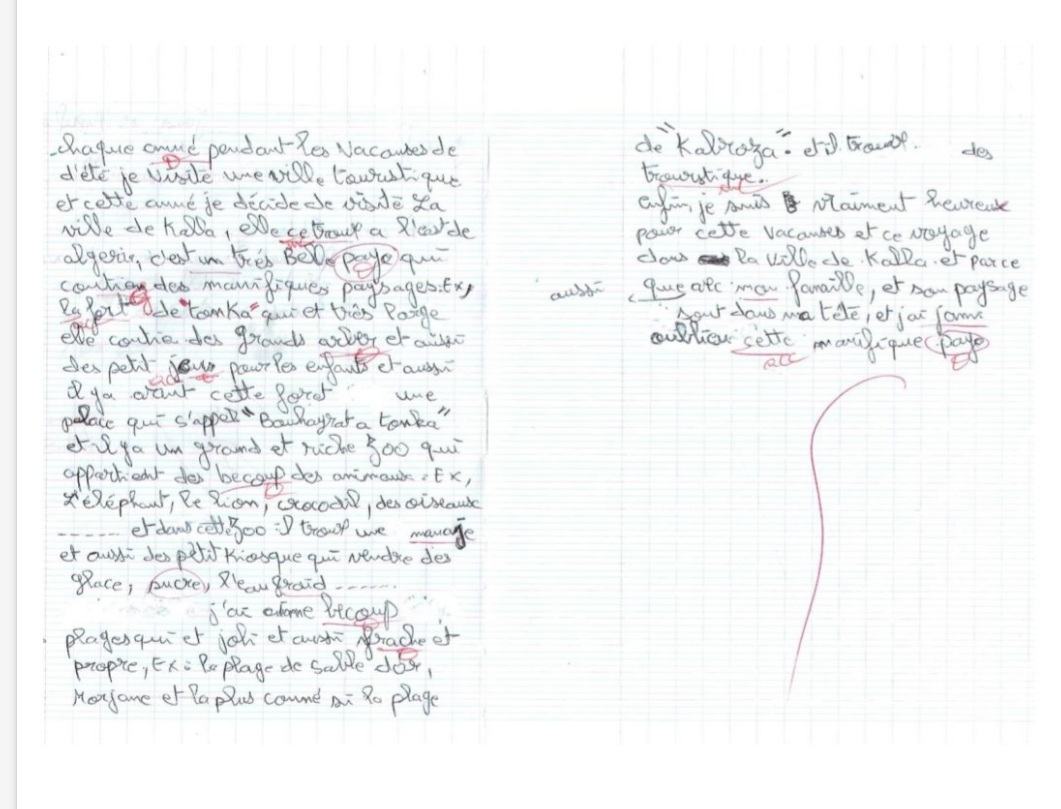 chaque annué pendant les vacauses de
d'été je visité une ville touristique
et cette annué je décide de visité La
ville de Kalla, elle cetrouf a l'est de
algerir, c'est un trés Belle paye qui
contien des manifiques paysages. Ex,
la fort de "tonka" qui et très large
elle contien des grands arber et aussi
des petit jeus pour les enfants et aussi
il ya avant cette foret une
palace qui s'appel "Bouhayrata tonka"
et il ya un grand et riche Zoo qui
appartient des becoup des animaux. Ex,
L'éléphant, le lion, crocodil, des oiseaux
et dans cette Zoo il trouf une manage
et aussi des petit Kiosque qui vendre des
glace, sucre, l'eau fraid
j'ai aime becoup
plages qui et joli et aussi frache et
propre, Ex: la plage de sable dor,
Morjane et la plus connué si la plage
de "Kalroza". et il trouve des
trouristique.
enfin, je suis vraiment heureux
pour cette vacanses et ce voyage
dans la ville de Kalla. et parce
que avec mon famille, et son paysage
aussi
sont dans ma tété, et j'ai jame
oublieu cette manifique paye
ac
ac